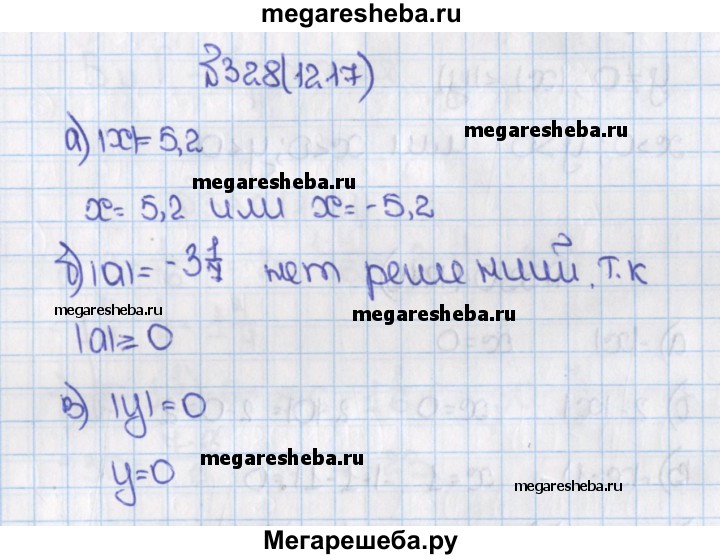 megaresheba.ru
№328(1217)
а) |x|= 5,2
megaresheba.ru
megaresheba.ru
x= 5,2 или x= -5,2
б) |a|= -3 1/7 нет решений, т.к
megaresheba.ru
megaresheba.ru
|a| ⩾ 0
в) |y|=0
y=0
megaresheba.ru
megaresheba.ru
Мегарешеба.ру